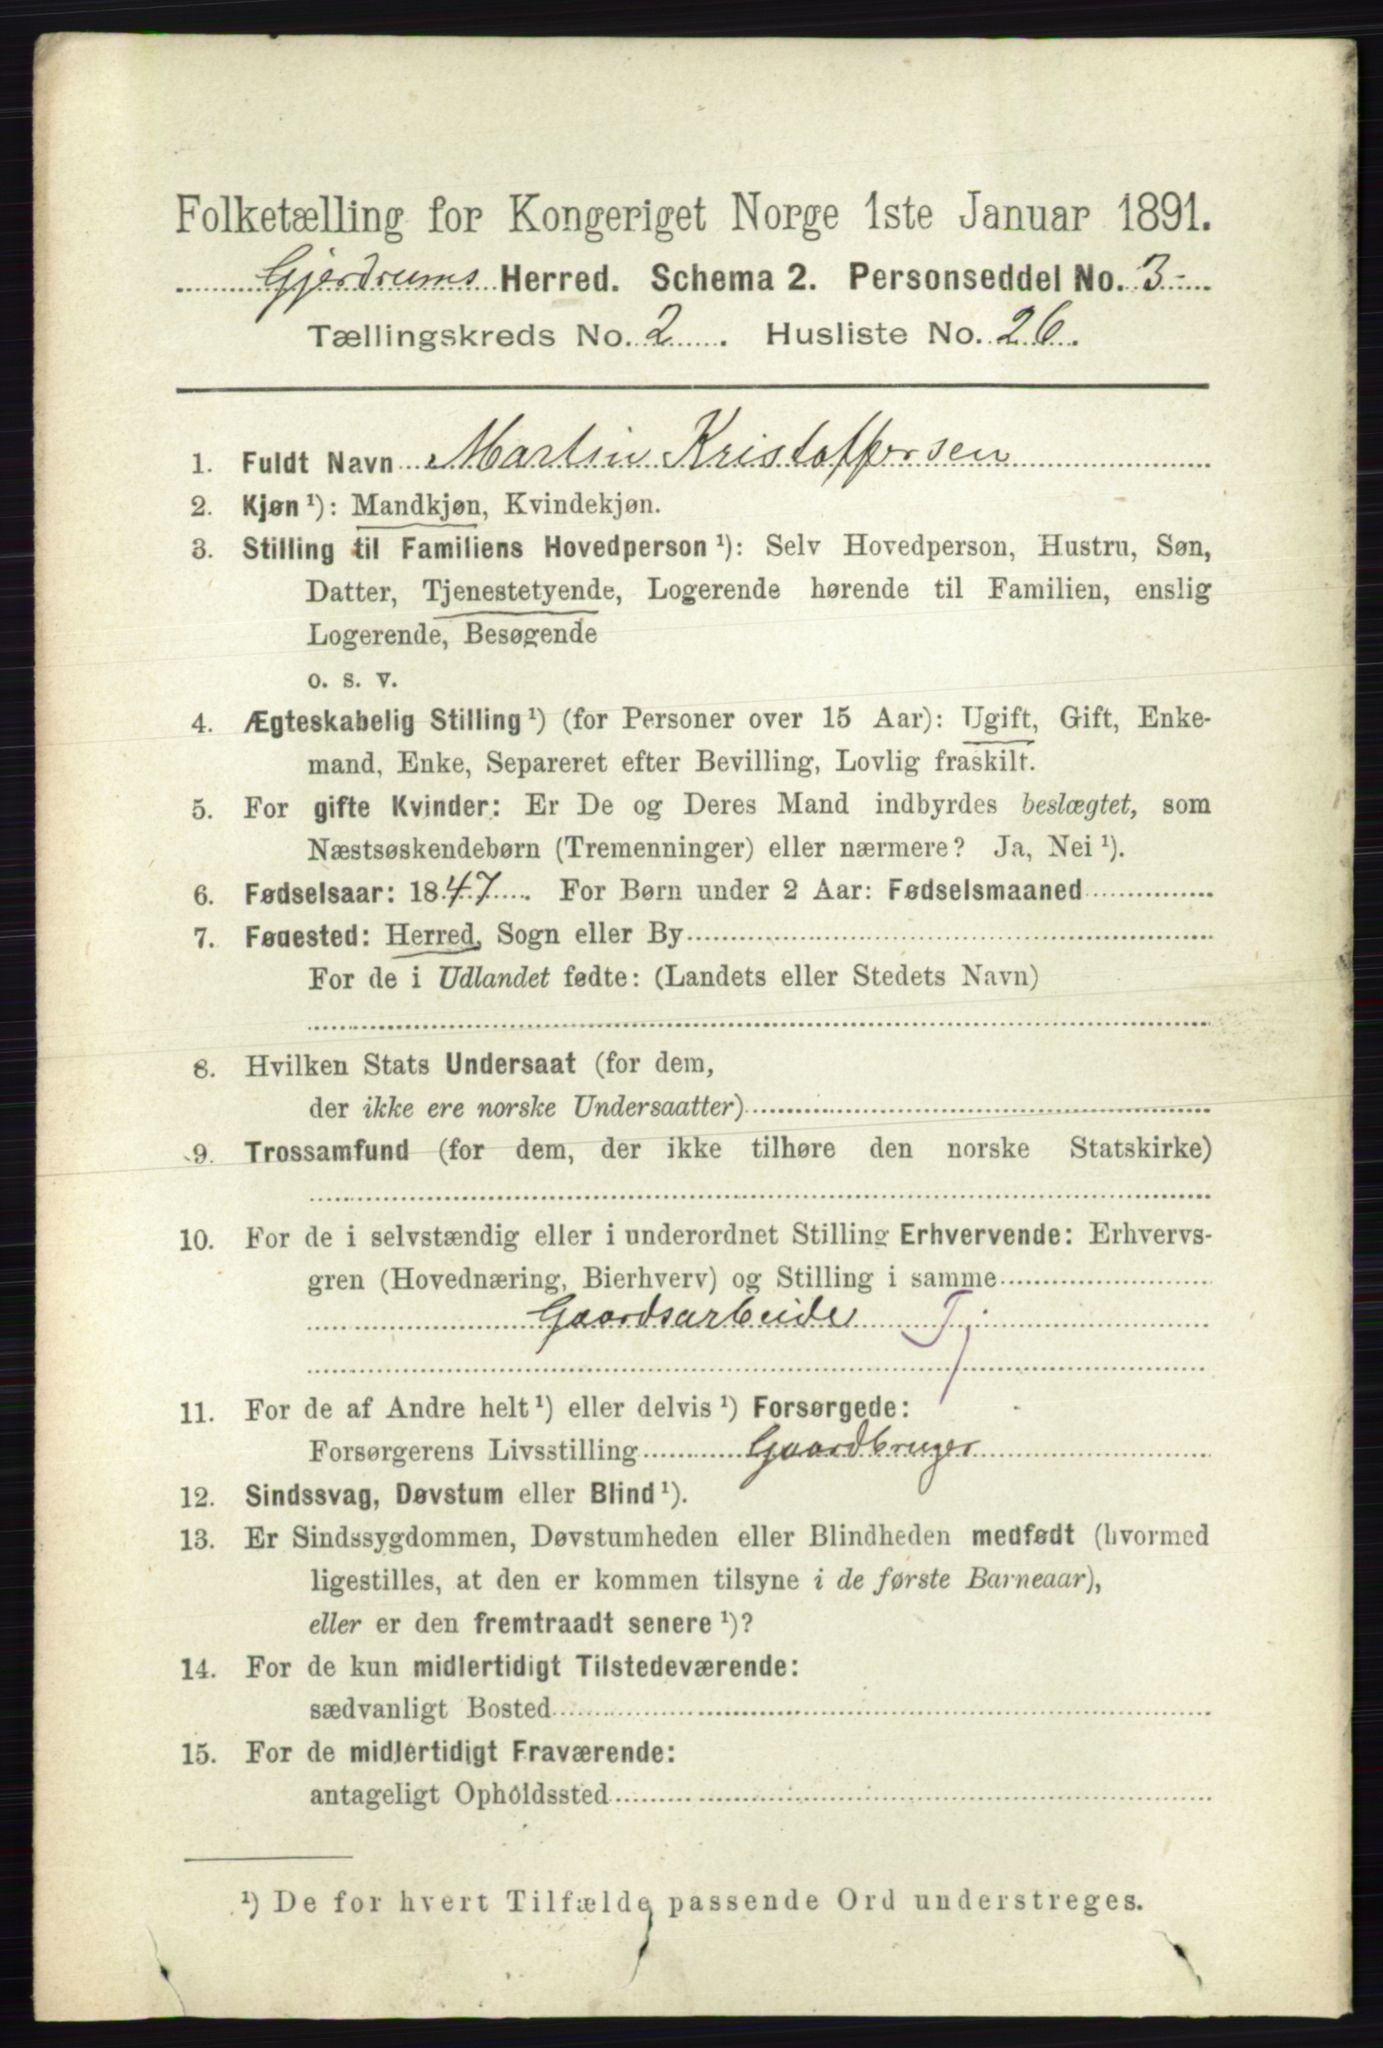 Folketælling for Kongeriget Norge 1ste Januar 1891.
Gjerdrums Herred. Schema 2. Personseddel No. 3
Tællingskreds No. 2. Husliste No. 26.
1. Fuldt Navn Martin Kristoffersen
2. Kjøn¹): Mandkjøn, Kvindekjøn.
3. Stilling til Familiens Hovedperson¹): Selv Hovedperson, Hustru, Søn,
Datter, Tjenestetyende, Logerende hørende til Familien, enslig
Logerende, Besøgende
o. s. v.
4. Ægteskabelig Stilling¹) (for Personer over 15 Aar): Ugift, Gift, Enke-
mand, Enke, Separeret efter Bevilling, Lovlig fraskilt.
5. For gifte Kvinder: Er De og Deres Mand indbyrdes beslægtet, som
Næstsøskendebørn (Tremenninger) eller nærmere? Ja, Nei¹).
6. Fødselsaar: 1847. For Børn under 2 Aar: Fødselsmaaned
7. Føaested: Herred, Sogn eller By
For de i Udlandet fødte: (Landets eller Stedets Navn)
8. Hvilken Stats Undersaat (for dem,
der ikke ere norske Undersaatter)
9. Trossamfund (for dem, der ikke tilhøre den norske Statskirke)
10. For de i selvstændig eller i underordnet Stilling Erhvervende: Erhvervs-
gren (Hovednæring, Bierhverv) og Stilling i samme
Gaardsarbeide Tj
11. For de af Andre helt¹) eller delvis¹) Forsørgede:
Forsørgerens Livsstilling Gaardbruger
12. Sindssvag, Døvstum eller Blind¹).
13. Er Sindssygdommen, Døvstumheden eller Blindheden medfødt (hvormed
ligestilles, at den er kommen tilsyne i de første Barneaar),
eller er den fremtraadt senere¹)?
14. For de kun midlertidigt Tilstedeværende:
sædvanligt Bosted
15. For de midlertidigt Fraværende:
antageligt Opholdssted
¹) De for hvert Tilfælde passende Ord understreges.